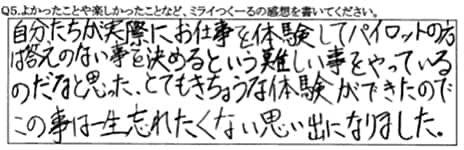 Q5.よかったことや楽しかったことなど、ミライつくーるの感想を書いてください。
自分たちが実際にお仕事を体験してパイロットの方
は答えのない事を決めるという難しい事をやっている
のだなと思った、とてもきちょうな体験ができたので
この事は一生忘れたくない思い出になりました。